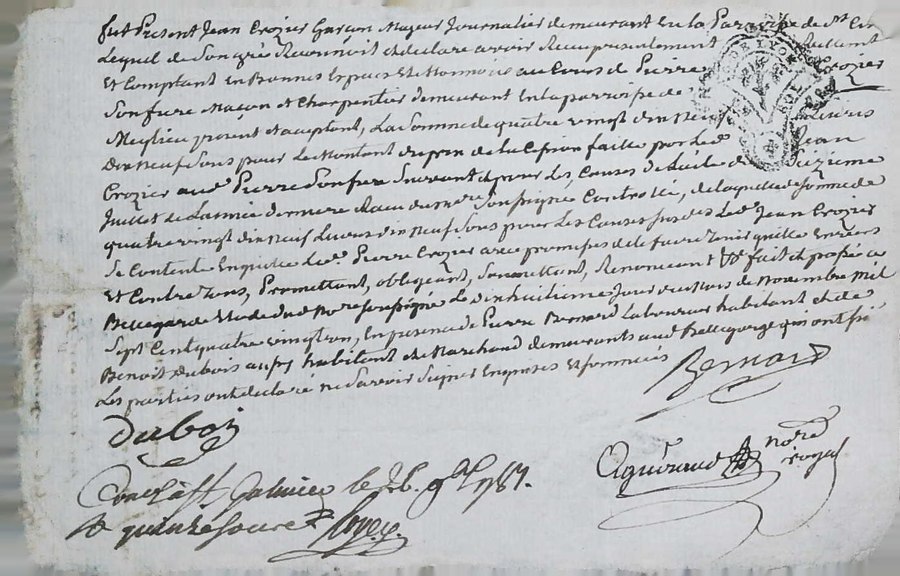 fut Présent Jean Crozier Garçon Majeur Journalier demeurant en la Paroisse de St
Lequel de Son gré Reconnoit et declare avoir Recu presentement
Et Comptant en Bonnes Especes et Monnoie au Cours de Pierre Crozier
Son frere Macon et Charpentier demeurant en la parroisse de
present et acceptant, La Somme de quatre vingt dix neuf Livres
dix neuf Sous pour Le Montant du prix de la Cession faitte par led Jean
Crozier aud Pierre Son frere Suivant et pour Les Causes de Lacte du
Juillet de Lannée derniere Recu du nore Soussigné Controllé, de laquelle Somme de
quatre vingt dix neuf Livres dix neuf Sous pour Les Causes sus des Led Jean Crozier
Se Contente En quitte led Pierre Crozier avec promesse de le faire Tenir quitte Envers
Et Contre Tous, Promettant, obligeant, Soumettant, Renoncant &a fait et passé a
Bellegarde Etude dud nore soussigné Le dixhuitième Jour du Mois de Novembre Mil
Sept Cent quatre vingt un, En presence de Pierre Bernard Laboureur habitant et de
Benoit Dubois aussy habitant et Marchand demeurants aud Bellegarde qui ont
Les parties ont declaré ne Savoir Signer Enquises et Sommées
Bernard
Duboi
Aguiraud nore
royal
Conllé à St Galmier le 26. 9bre 1781.
quinze sous